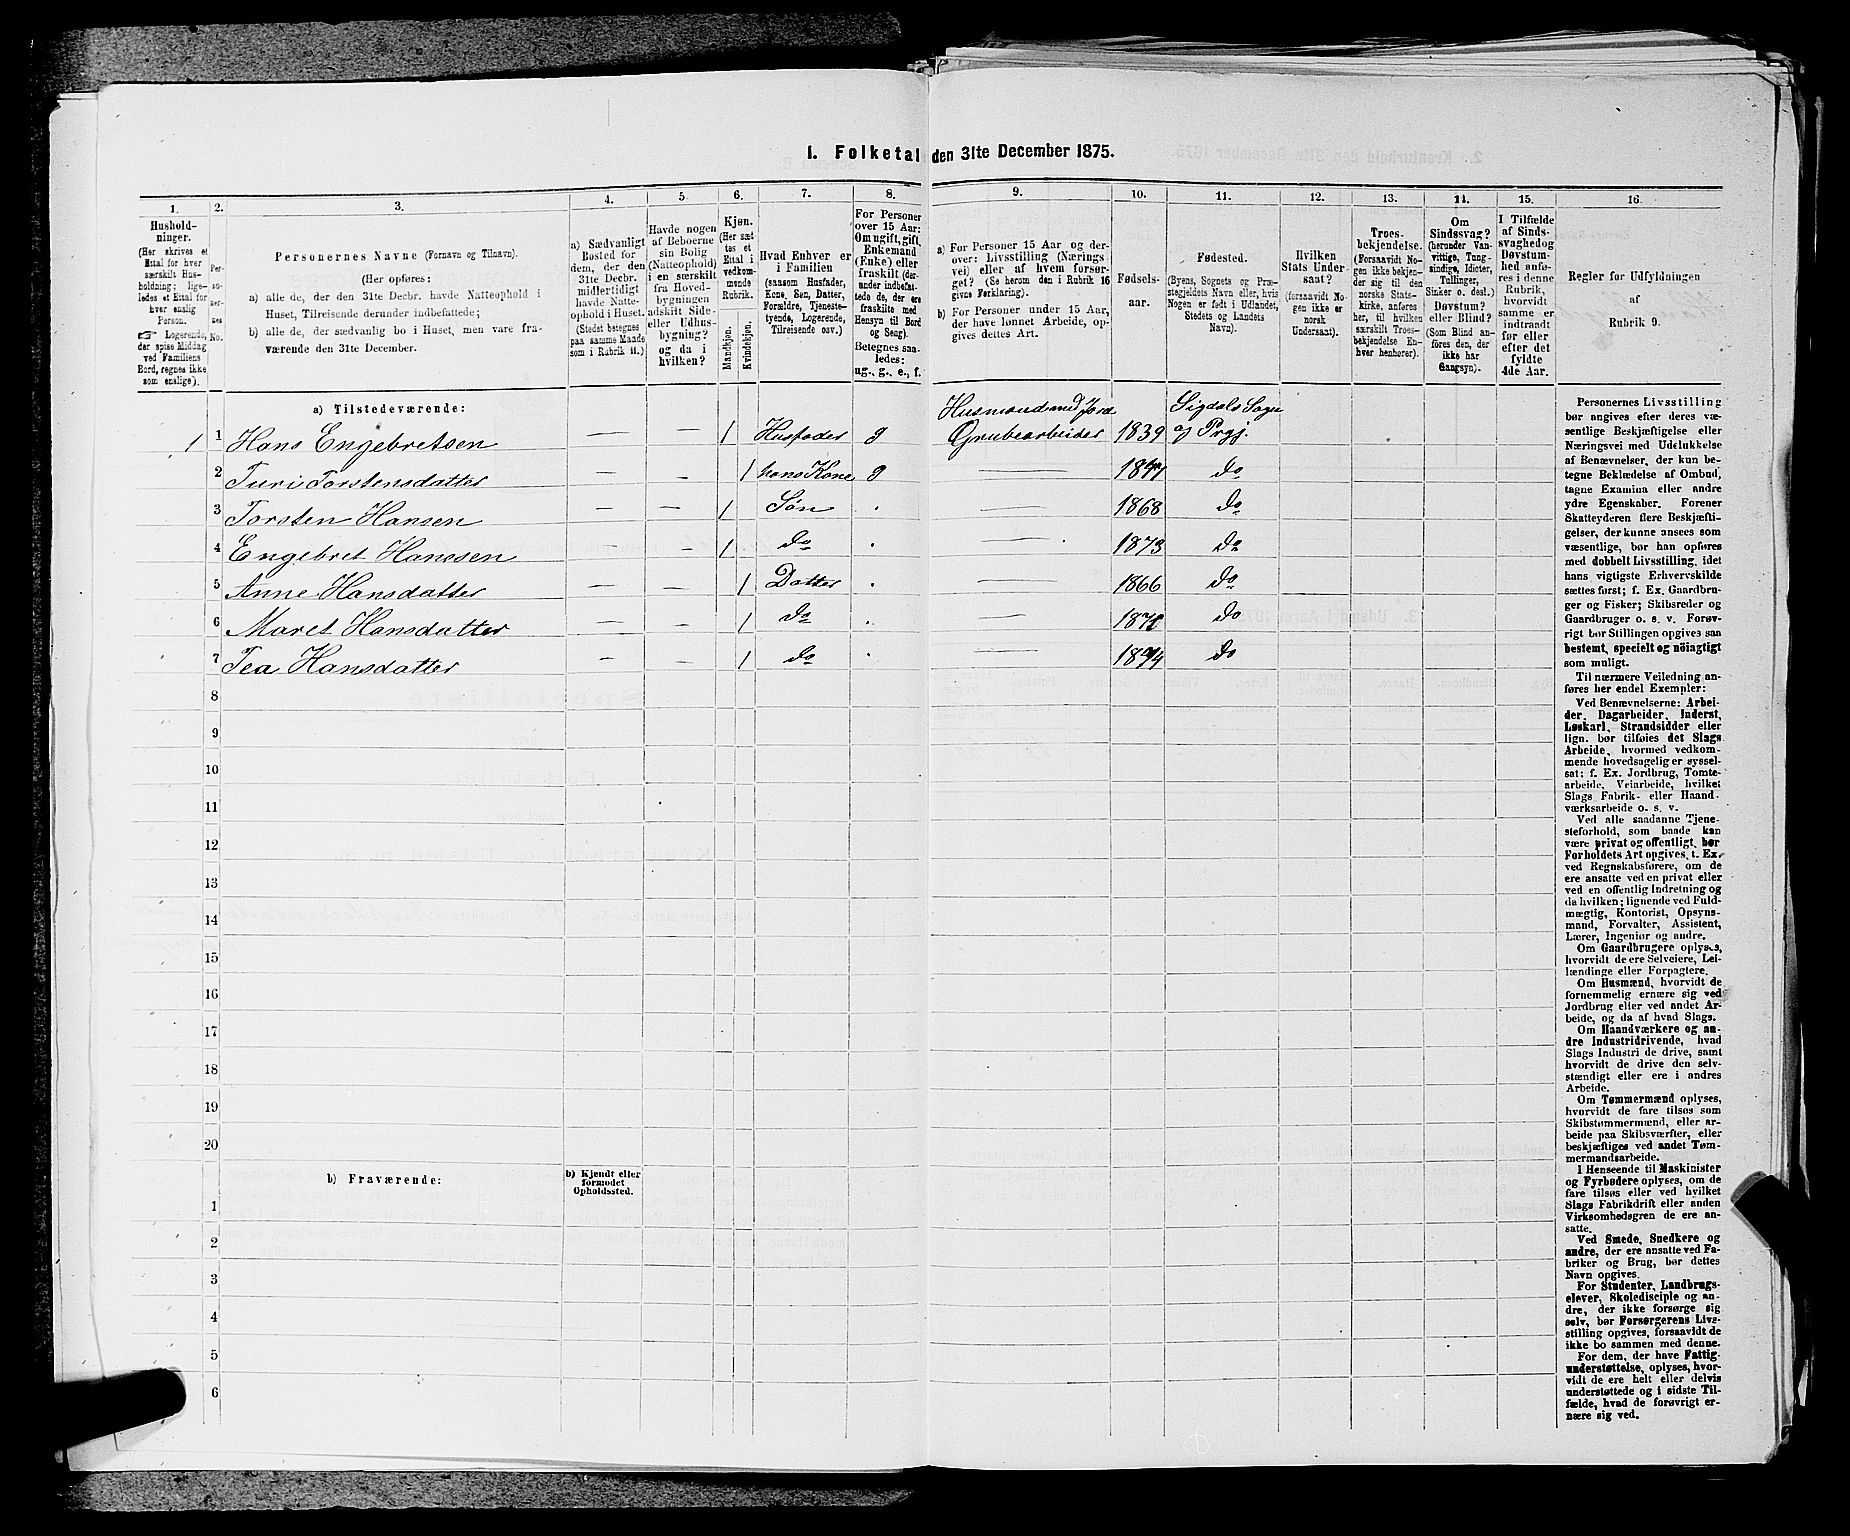 1. Folketal den 31te December 1875.
1. 2. 3. 4. 5. 6. 7. 8. 9. 10. 11. 12. 13. 14. 15. 16.
Hushold-
ninger.
(Her skrives et
Ettal for hver
særskilt Hus-
holdning; lige-
ledes et Ettal for
hver enslig
Person.
☞ Logerende,
der spise Middag
ved Familiens
Bord, regnes ikke
som enslige).
Per-
so-
ner-
nes
No.
Personernes Navne (Fornavn og Tilnavn).
(Her opføres:
a) alle de, der den 31te Decbr. havde Natteophold i
Huset, Tilreisende derunder indbefattede;
b) alle de, der sædvanlig bo i Huset, men vare fra-
værende den 31te December.
a) Sædvanligt
Bosted for
dem, der den
31te Decbr.
midlertidigt
havde Natte-
ophold i Huset.
(Stedet betegnes
paa samme Maade
som i Rubrik 11.)
Havde nogen
af Beboerne
sin Bolig
(Natteophold)
i en særskilt
fra Hoved-
bygningen
adskilt Side-
eller Udhus-
bygning?
og da i
hvilken?
Kjøn.
(Her sæt
tes et
Ettal i
vedkom-
mende
Rubrik.
Mandkjøn.
Kvindekjøn.
Hvad Enhver er
i Familien
(saasom Husfader,
Kone, Søn, Datter,
Forældre, Tjeneste-
tyende, Logerende,
Tilreisende osv.)
For Personer
over 15 Aar:
Om ugift, gift,
Enkemand
(Enke) eller
fraskilt (der-
under indbefat-
tede de, der ere
fraskilte med
Hensyn til Bord
og Seng).
Betegnes saa-
ledes:
ug., g., e., f.
a) For Personer 15 Aar og der-
over: Livsstilling (Nærings-
vei) eller af hvem forsør-
get? (Se herom den i Rubrik 16
givne Forklaring).
b) For Personer under 15 Aar,
der have lønnet Arbeide, op-
gives dettes Art.
Fødsels-
aar.
Fødested.
(Byens, Sognets og Præ-
stegjeldets Navn eller, hvis
Nogen er født i Udlandet,
Stedets og Landets
Navn).
Hvilken
Stats Under-
saat?
(forsaavidt No-
gen ikke er
norsk
Undersaat).
Troes-
bekjendelse.
(Forsaavidt No-
gen ikke bekjen-
der sig til den
norske Stats-
kirke, anføres
her, til hvilken
særskilt Troes-
bekjendelse En-
hver henhører).
Om
Sindssvag?
(herunder Van-
vittige, Tung-
sindige, Idioter,
Tullinger,
Sinker o. desl.)
Døvstum?
eller Blind?
(Som Blind an-
føres den, der
ikke har
Gangsyn).
I Tilfælde
af Sinds-
svaghed og
Døvstum-
hed anfø-
res i denne
Rubrik,
hvorvidt
samme er
indtraadt
før eller
efter det
fyldte
4de Aar.
Regler for Udfyldningen
af
Rubrik 9.
a) Tilstedeværende:
Husmand med Jord Sigdals Sogn
1 1 Hans Engebretsen — — 1 Husfader g Grubearbeider 1839 og Prgj.
2 Turi Torstensdatter — — 1 hans Kone g — 1841 do
3 Torsten Hansen — — 1 Søn . — 1868 do
4 Engebret Hanssen — — 1 do . — 1873 do
5 Anne Hansdatter — — 1 Datter . — 1866 do
6 Maret Hansdatter — — 1 do . — do
7 Tea Hansdatter — — 1 do . — do
8
9
10
11
12
13
14
15
16
17
18
19
20
b) Fraværende:
b) Kjendt eller
formodet
Opholdssted.
1
2
3
4
5
6
Personernes Livsstilling
bør angives efter deres væ-
sentlige Beskjæftigelse eller
Næringsvei med Udelukkelse
af Benævnelser, der kun be-
tegne Beklædelse af Ombud,
tagne Examina eller andre
ydre Egenskaber. Forener
Skatteyderen flere Beskjæfti-
gelser, der kunne ansees som
væsentlige, bør han opføres
med dobbelt Livsstilling, idet
hans vigtigste Erhvervskilde
sættes først; f. Ex. Gaardbru-
ger og Fisker; Skibsreder og
Gaardbruger o. s. v. Forøv-
rigt bør Stillingen opgives saa
bestemt, specielt og nöiagtigt
som muligt.
Til nærmere Veiledning an-
føres her endel Exempler:
Ved Benævnelserne: Arbei-
der, Dagarbeider, Inderst,
Løskarl, Strandsidder eller
lign. bør tilføies det Slags
Arbeide, hvormed vedkom-
mende hovedsagelig er syssel-
sat; f. Ex. Jordbrug, Tomte-
arbeide, Veiarbeide, hvilket
Slags Fabrik- eller Haand-
værksarbeide o. s. v.
Ved alle saadanne Tjene-
steforhold, som baade kan
være privat og offentligt, bør
Forholdets Art opgives, t. Ex.
ved Regnskabsførere, om de
ere ansatte ved en privat eller
ved en offentlig Indretning og
da hvilken; lignende ved Fuld-
mægtig, Kontorist, Opsyns-
mand, Forvalter, Assistent,
Lærer, Ingeniør og andre.
Om Gaardbrugere oplyses,
hvorvidt de ere Selveiere, Lei-
lændinge eller Forpagtere.
Om Husmænd, hvorvidt de
fornemmelig ernære sig ved
Jordbrug eller ved andet Ar-
beide, og da af hvad Slags.
Om Haandværkere og an-
dre Industridrivende, hvad
Slags Industri de drive, samt
hvorvidt de drive den selv-
stændigt eller ere i andres
Arbeide.
Om Tømmermænd oplyses,
hvorvidt de fare tilsøs som
Skibstømmermænd, eller ar-
beide paa Skibsværfter, eller
beskjæftiges ved andet Tøm-
mermandsarbeide.
I Henseende til Maskinister
og Fyrbødere oplyses, om de
fare tilsøs eller ved hvilket
Slags Fabrikdrift eller anden
Virksomhedsgren de ere an-
satte.
Ved Smede, Snedkere og
andre, der ere ansatte ved Fa-
briker og Brug, bør dettes
Navn opgives.
For Studenter, Landbrugs-
elever, Skoledisciple og an-
dre, der ikke forsørge sig
selv, bør Forsørgerens Livs-
stilling opgives, forsaavidt de
ikke bo sammen med denne.
For dem, der have Fattig-
understøttelse, oplyses, hvor-
vidt de ere helt eller delvis
understøttede og i sidste Til-
fælde, hvad de forøvrigt er-
nære sig ved.